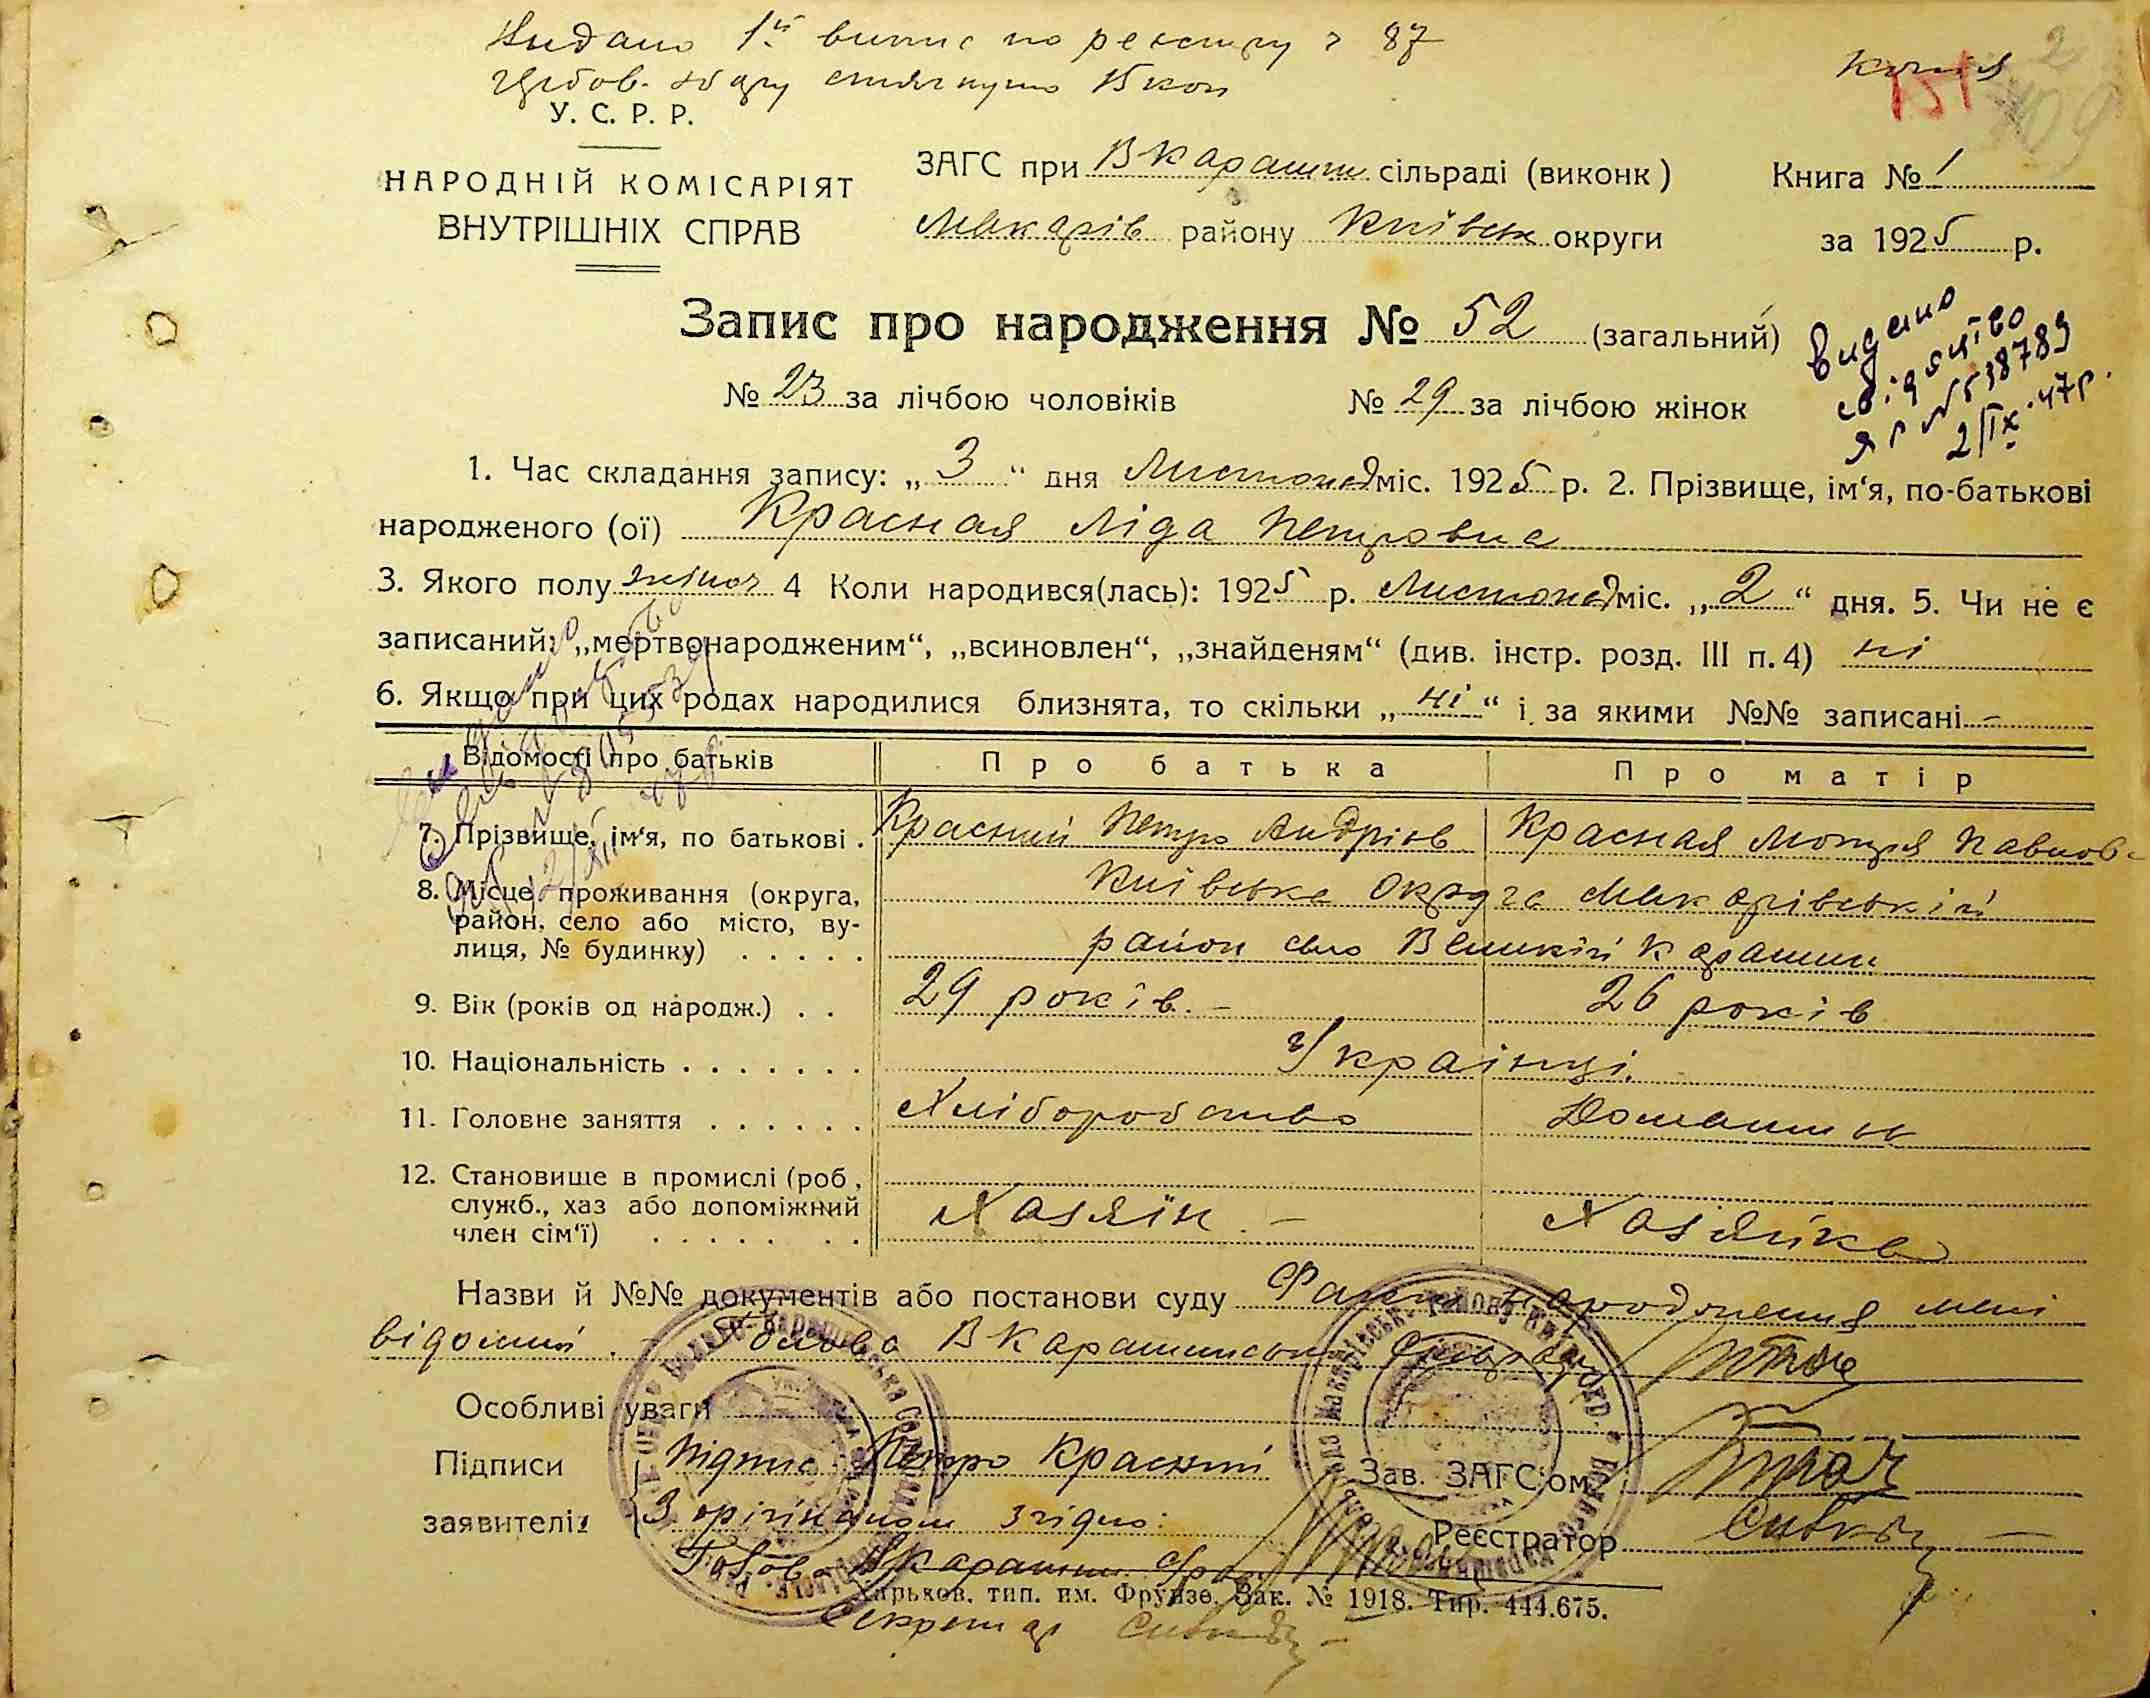 Видано 1й випис по реєстру № 87
стягнуто 15 коп
копія
2
151
109
У. С. Р. Р.
НАРОДНІЙ КОМІСАРІЯТ
ВНУТРІШНІХ СПРАВ
ЗАГС при ВКарашин. сільраді (виконк)
Макарів району Київськ округи
Книга № 1
за 1925 р.
Запис про народження № 52 (загальний)
№ 23 за лічбою чоловіків № 29 за лічбою жінок
видано
свідоцтво
2/IX.47р.
1. Час складання запису: „3“ дня Листопад міс. 1925 р. 2. Прізвище, ім‘я, по-батькові
народженого (ої) Красная Ліда Петровна
3. Якого полу жіноч 4 Коли народився(лась): 1925 р. Листопад міс. „2“ дня. 5. Чи не є
записаний: „мертвонародженим“, „всиновлен“, „знайденям“ (див. інстр. розд. III п. 4) ні
6. Якщо при цих родах народилися близнята, то скільки „ні“ і за якими №№ записані -
Відомості про батьків Про батька Про матір
7. Прізвище, ім‘я, по батькові . Красний Петро Андріїв Красная Мотря Павлов-
8. Місце проживання (округа, Київська Округа Макарівській
район, село або місто, ву- район село Великій Карашин
лиця, № будинку) . . . . .
9. Вік (років од народж.) . . 29 років. - 26 років
10. Національність . . . . . . . Українці.
11. Головне заняття . . . . . . Хліборобство Домашни
12. Становище в промислі (роб ,
служб., хаз або допоміжний Хазяїн. - Хазяйка
член сім‘ї) . . . . . . .
Назви й №№ документів або постанови суду Факт народження мені
відомий. - Голова ВКарашинської Сільради
Особливі уваги
Підписи Підпис Петро Красний Зав. ЗАГС‘ом
заявителів З орігіналом згідно: Реєстратор
Голова ВКарашин.
Харьков. тип. им. Фрунзе. Зак. № 1918. Тир. 444.675.
Секретар